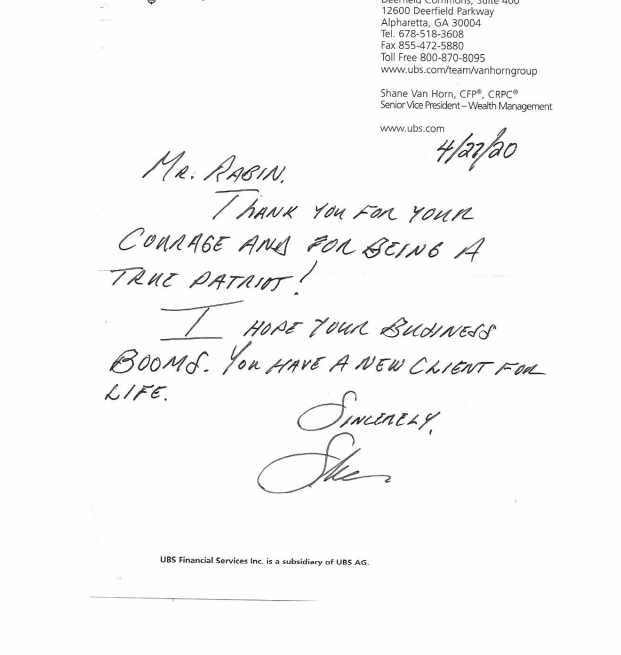 Deerfield Commons, Suite 400
12600 Deerfield Parkway
Alpharetta, GA 30004
Tel. 678-518-3608
Fax 855-472-5880
Toll Free 800-870-8095
www.ubs.com/team/vanhorngroup
Shane Van Horn, CFP®, CRPC®
Senior Vice President – Wealth Management
www.ubs.com
4/27/20
MR. RABIN.
THANK YOU FOR YOUR
COURAGE AND FOR BEING A
TRUE PATRIOT!
I HOPE YOUR BUSINESS
BOOMS. YOU HAVE A NEW CLIENT FOR
LIFE.
SINCERELY,
UBS Financial Services Inc. is a subsidiary of UBS AG.